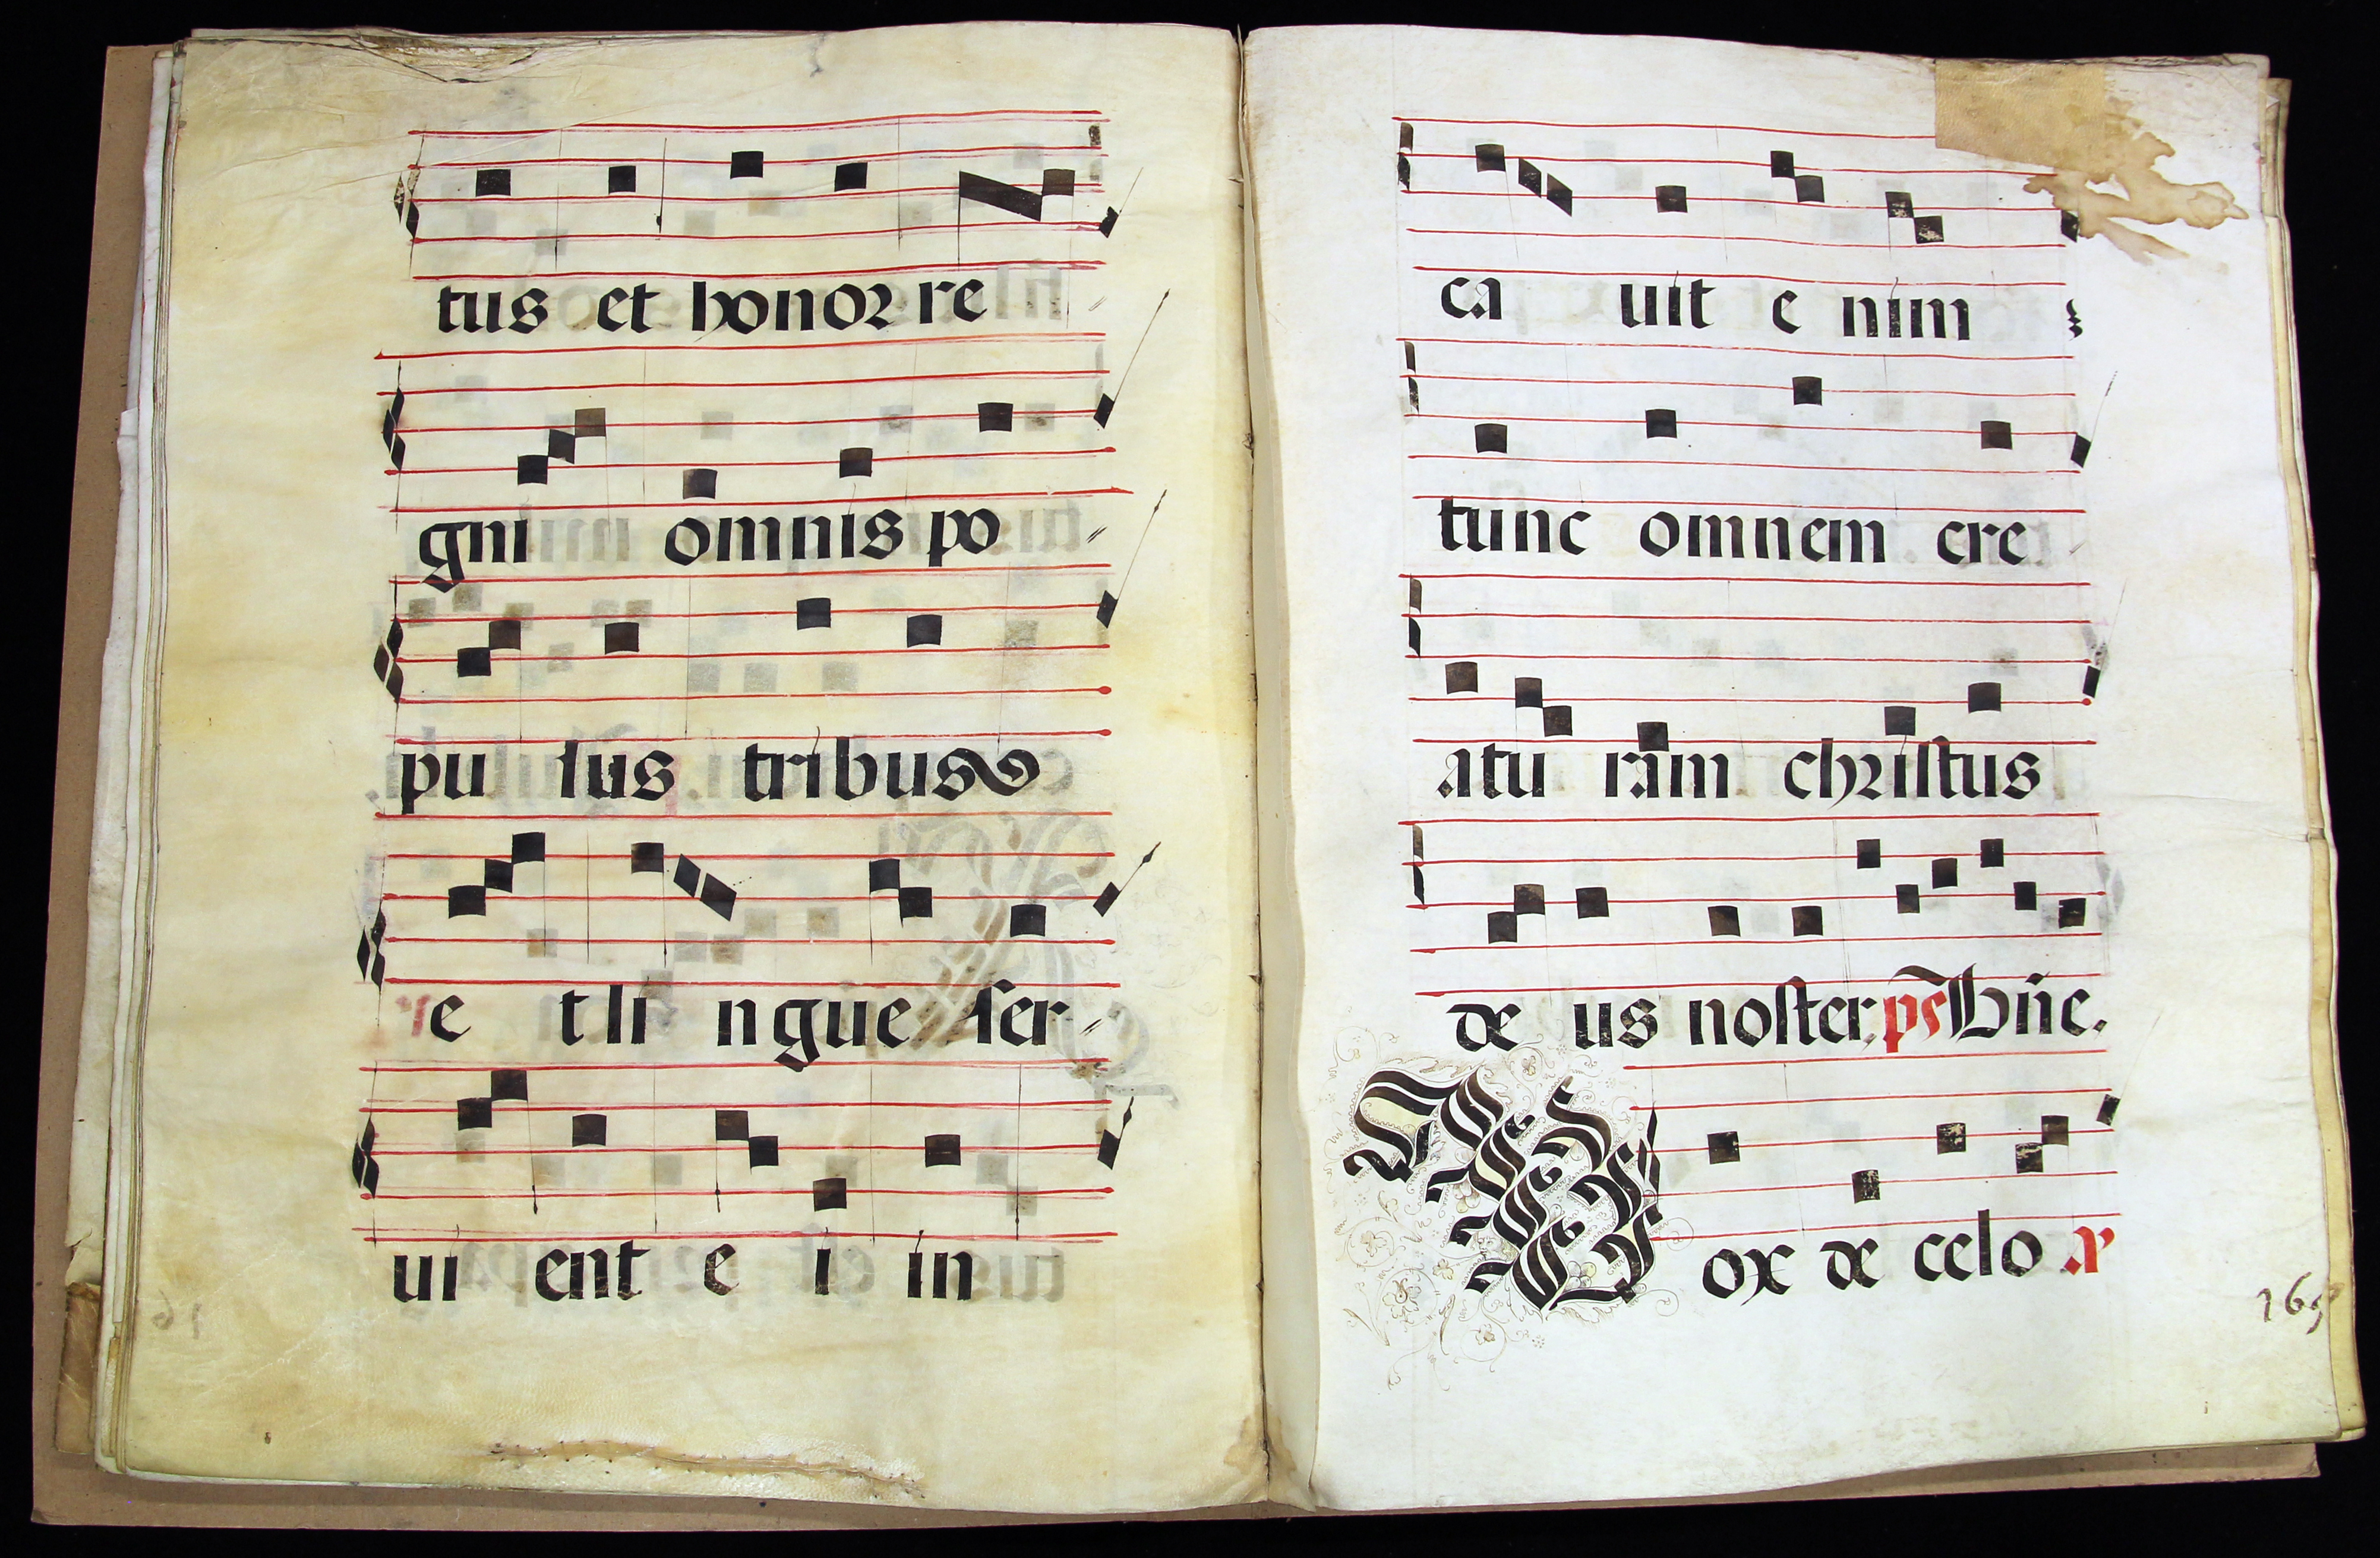 tus et honor re
gni omnis po
pu lus tribus
e t li ngue ser
ui ent e i in
ca uit e nim
tunc omnem cre
atu ram christus
de us noster. ps Bñe.
Vox de celo